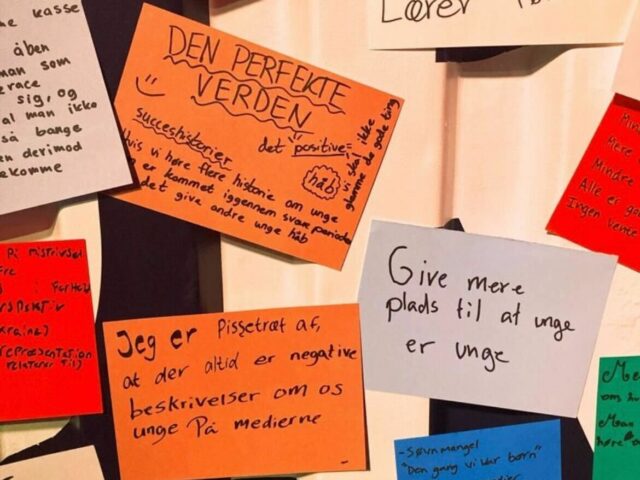 kasse
åben
man som
race
sig, og
al man ikke
så bange
en derimod
ekomme
DEN PERFEKTE
VERDEN
succeshistorier
det positive =
håb
vi skal ikke
glemme de gode ting
Hvis vi høre flere historie om unge
er kommet iggennem svære perioder
det give andre unge håb
Lærer
Mere
Mindre
Alle er
Ingen vente
På mistrivsel
i forhold
Give mere
plads til at unge
er unge
Jeg er Pissetræt af,
at der altid er negative
beskrivelser om os
unge På medierne
- Søvnmangel
"Den gang vi var børn"
Me
om
Man
høre